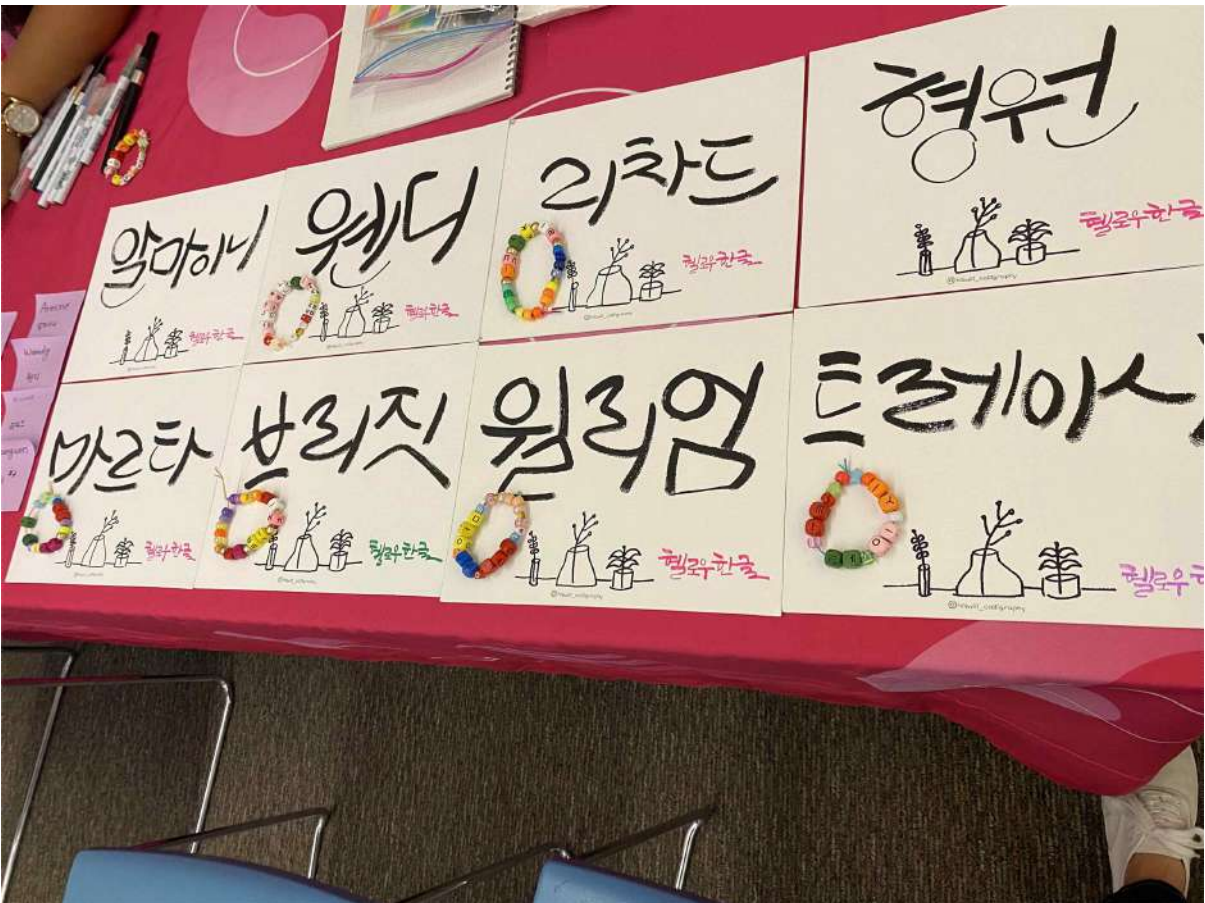 알마이니
헬로우한글
웬디
헬로우한글
리차드
헬로우한글
형원
헬로우한글
마르타
헬로우한글
브리짓
헬로우한글
윌리엄
헬로우한글
트레이시
헬로우한
Wendy
웬디